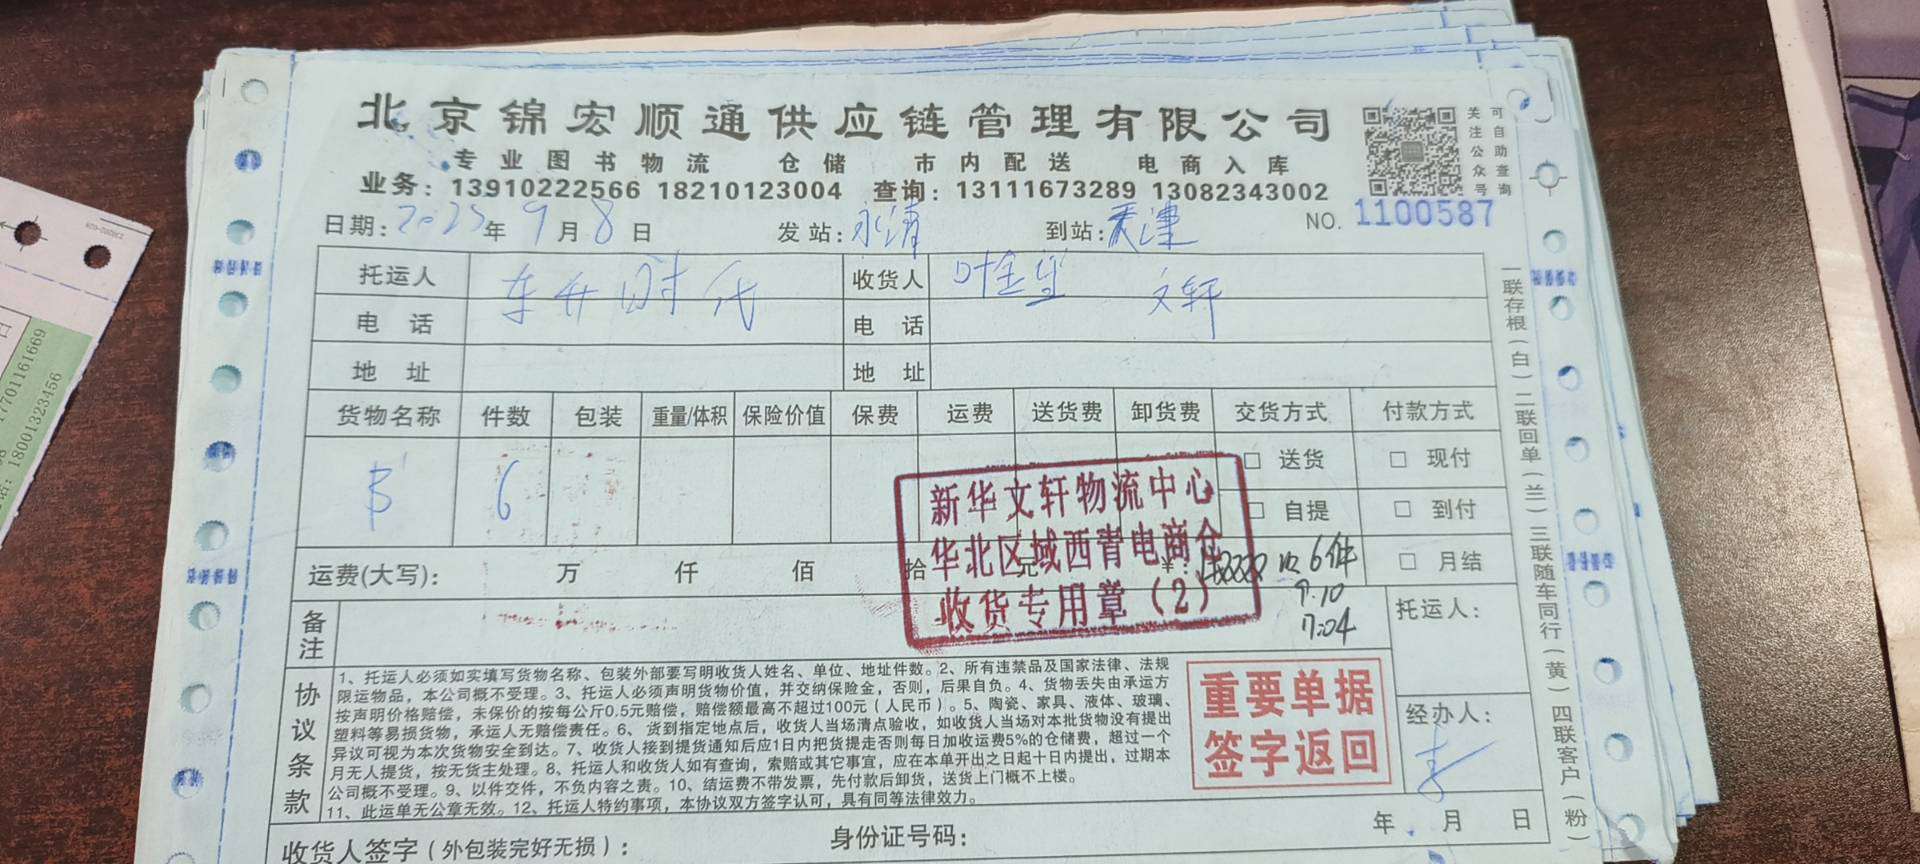 北京锦宏顺通供应链管理有限公司
专业图书物流 仓储 市内配送 电商入库
业务: 13910222566 18210123004 查询: 13111673289 13082343002
可自助查询
关注公众号
日期: 2025年9月8日 发站: 永清 到站: 天津 NO. 1100587
托运人 时代 收货人 文轩
电话 电话
地址 地址
货物名称 件数 包装 重量/体积 保险价值 保费 运费 送货费 卸货费 交货方式 付款方式
6 □ 送货 □ 现付
□ 自提 □ 到付
运费(大写): 万 仟 佰 拾 元 ¥: □ 月结
新华文轩物流中心
华北区域西青电商仓
收货专用章(2)
收6件
9.10
7:04
备注
托运人:
协议条款
1、托运人必须如实填写货物名称、包装外部要写明收货人姓名、单位、地址件数。2、所有违禁品及国家法律、法规
限运物品，本公司概不受理。3、托运人必须声明货物价值，并交纳保险金，否则，后果自负。4、货物丢失由承运方
按声明价格赔偿，未保价的按每公斤0.5元赔偿，赔偿额最高不超过100元（人民币）。5、陶瓷、家具、液体、玻璃、
塑料等易损货物，承运人无赔偿责任。6、货到指定地点后，收货人当场清点验收，如收货人当场对本批货物没有提出
异议可视为本次货物安全到达。7、收货人接到提货通知后应1日内把货提走否则每日加收运费5%的仓储费，超过一个
月无人提货，按无货主处理。8、托运人和收货人如有查询，索赔或其它事宜，应在本单开出之日起十日内提出，过期本
公司概不受理。9、以件交件，不负内容之责。10、结运费不带发票，先付款后卸货，送货上门概不上楼。
11、此运单无公章无效。12、托运人特约事项，本协议双方签字认可，具有同等法律效力。
重要单据
签字返回
经办人:
收货人签字（外包装完好无损）: 身份证号码: 年 月 日
一联存根(白)二联回单(兰)三联随车同行(黄)四联客户(粉)
17701161669
18001323456